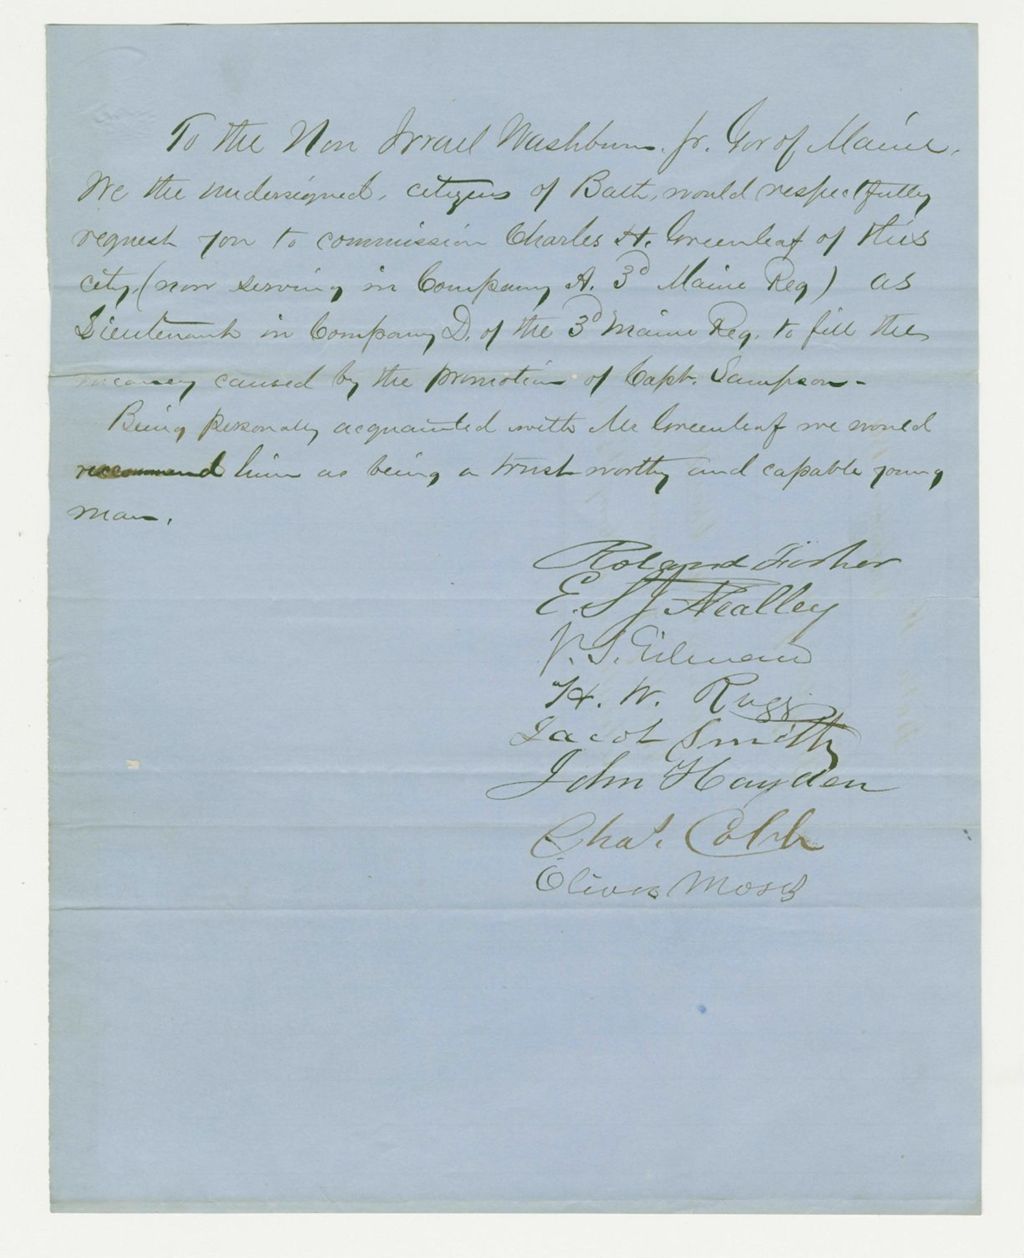 To the Hon Israel Washburn. Jr. Gov of Maine.
We the undersigned, citizens of Bath, would respectfully
request you to commission Charles H. Greenleaf of this
city, (now serving in Company A. 3d Maine Reg) as
Lieutenant in Company D. of the 3d Maine Reg. to fill the
vacancy caused by the promotion of Capt. Sampson-
Being personally acquainted with Mr Greenleaf we would
reccommend him as being a trust worthy and capable young
man.
Roland Fisher
E. S J Nealley
V. S. Gilman
H. W. Rugg
Jacob Smith
John Hayden
Chas. Cobb
Oliver Moses